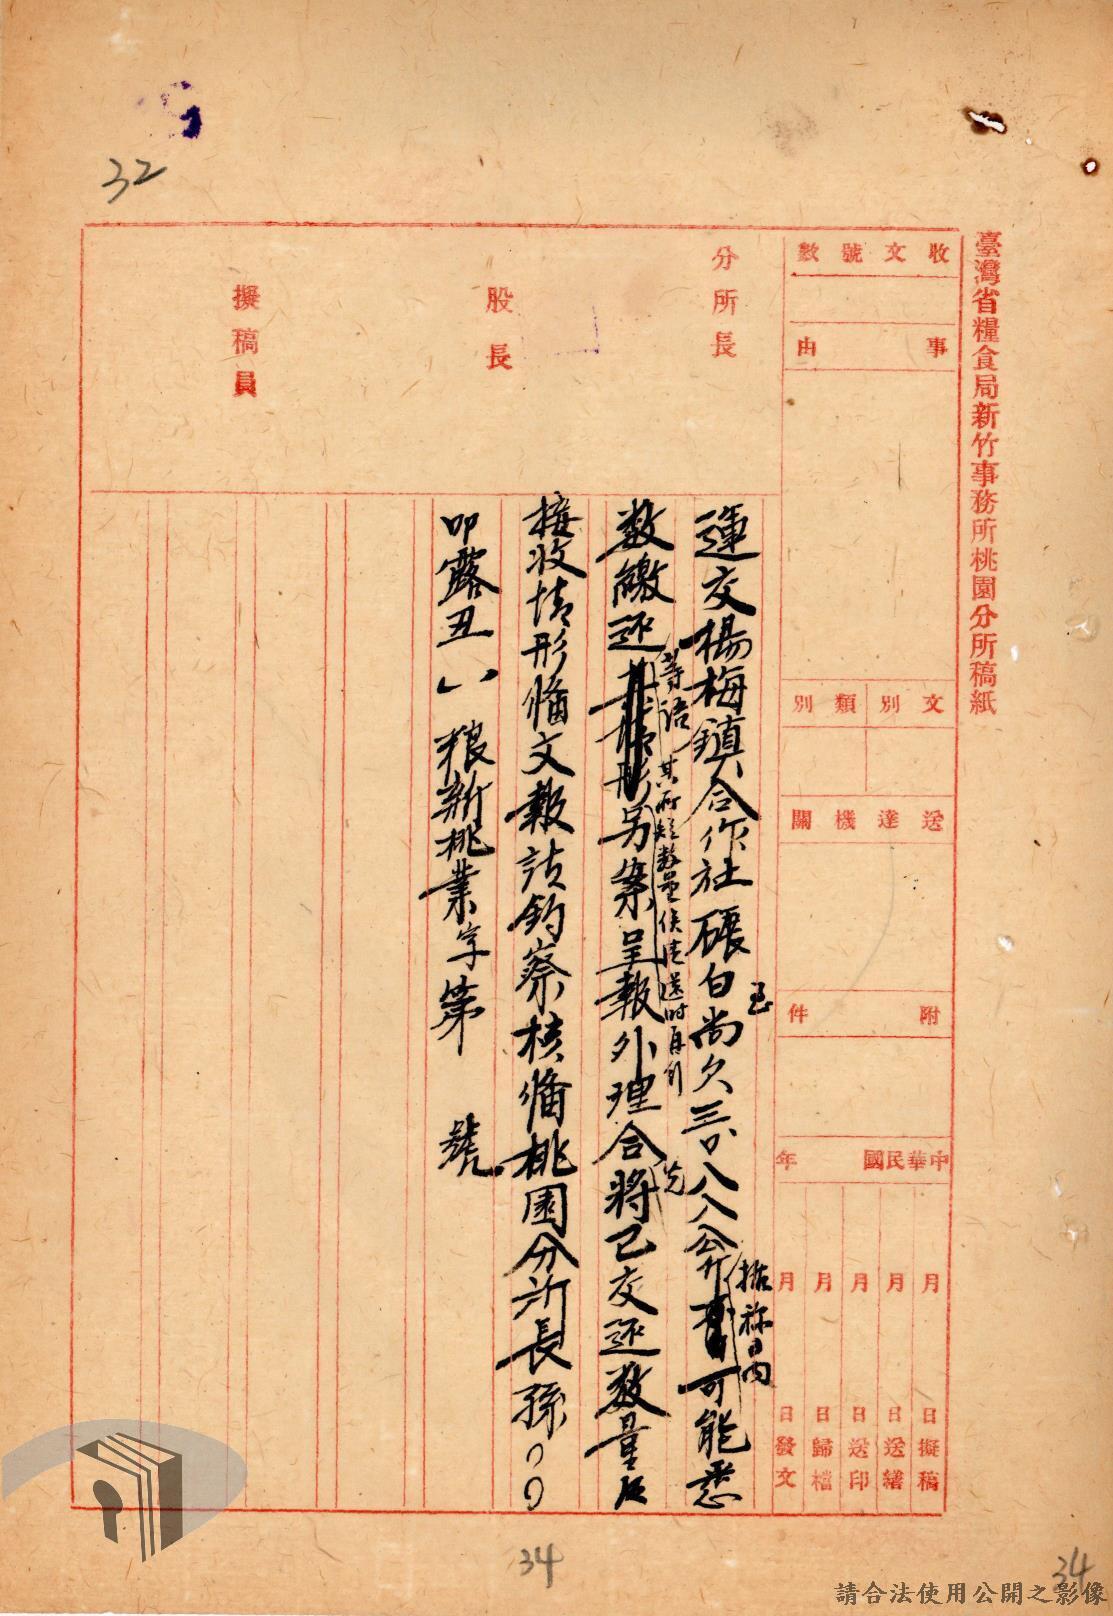 32
臺灣省糧食局新竹事務所桃園分所稿紙
收文號數
事由
文別
類別
送達機關
附件
中華民國 年
月 日擬稿
月 日送繕
月 日送印
月 日歸檔
月 日發文
分所長
股長
擬稿員
運交楊梅鎮合作社碾白尚欠三〇八八公斤
據称日內
可能悉
数繳还
等语
其所短数量俟清还时再行
另案呈報外理合
先
將已交还数量及
接收情形備文報請鈞察核備桃園分所長孫〇〇
叩露丑八粮新桃業字第 號
34
34
請合法使用公開之影像